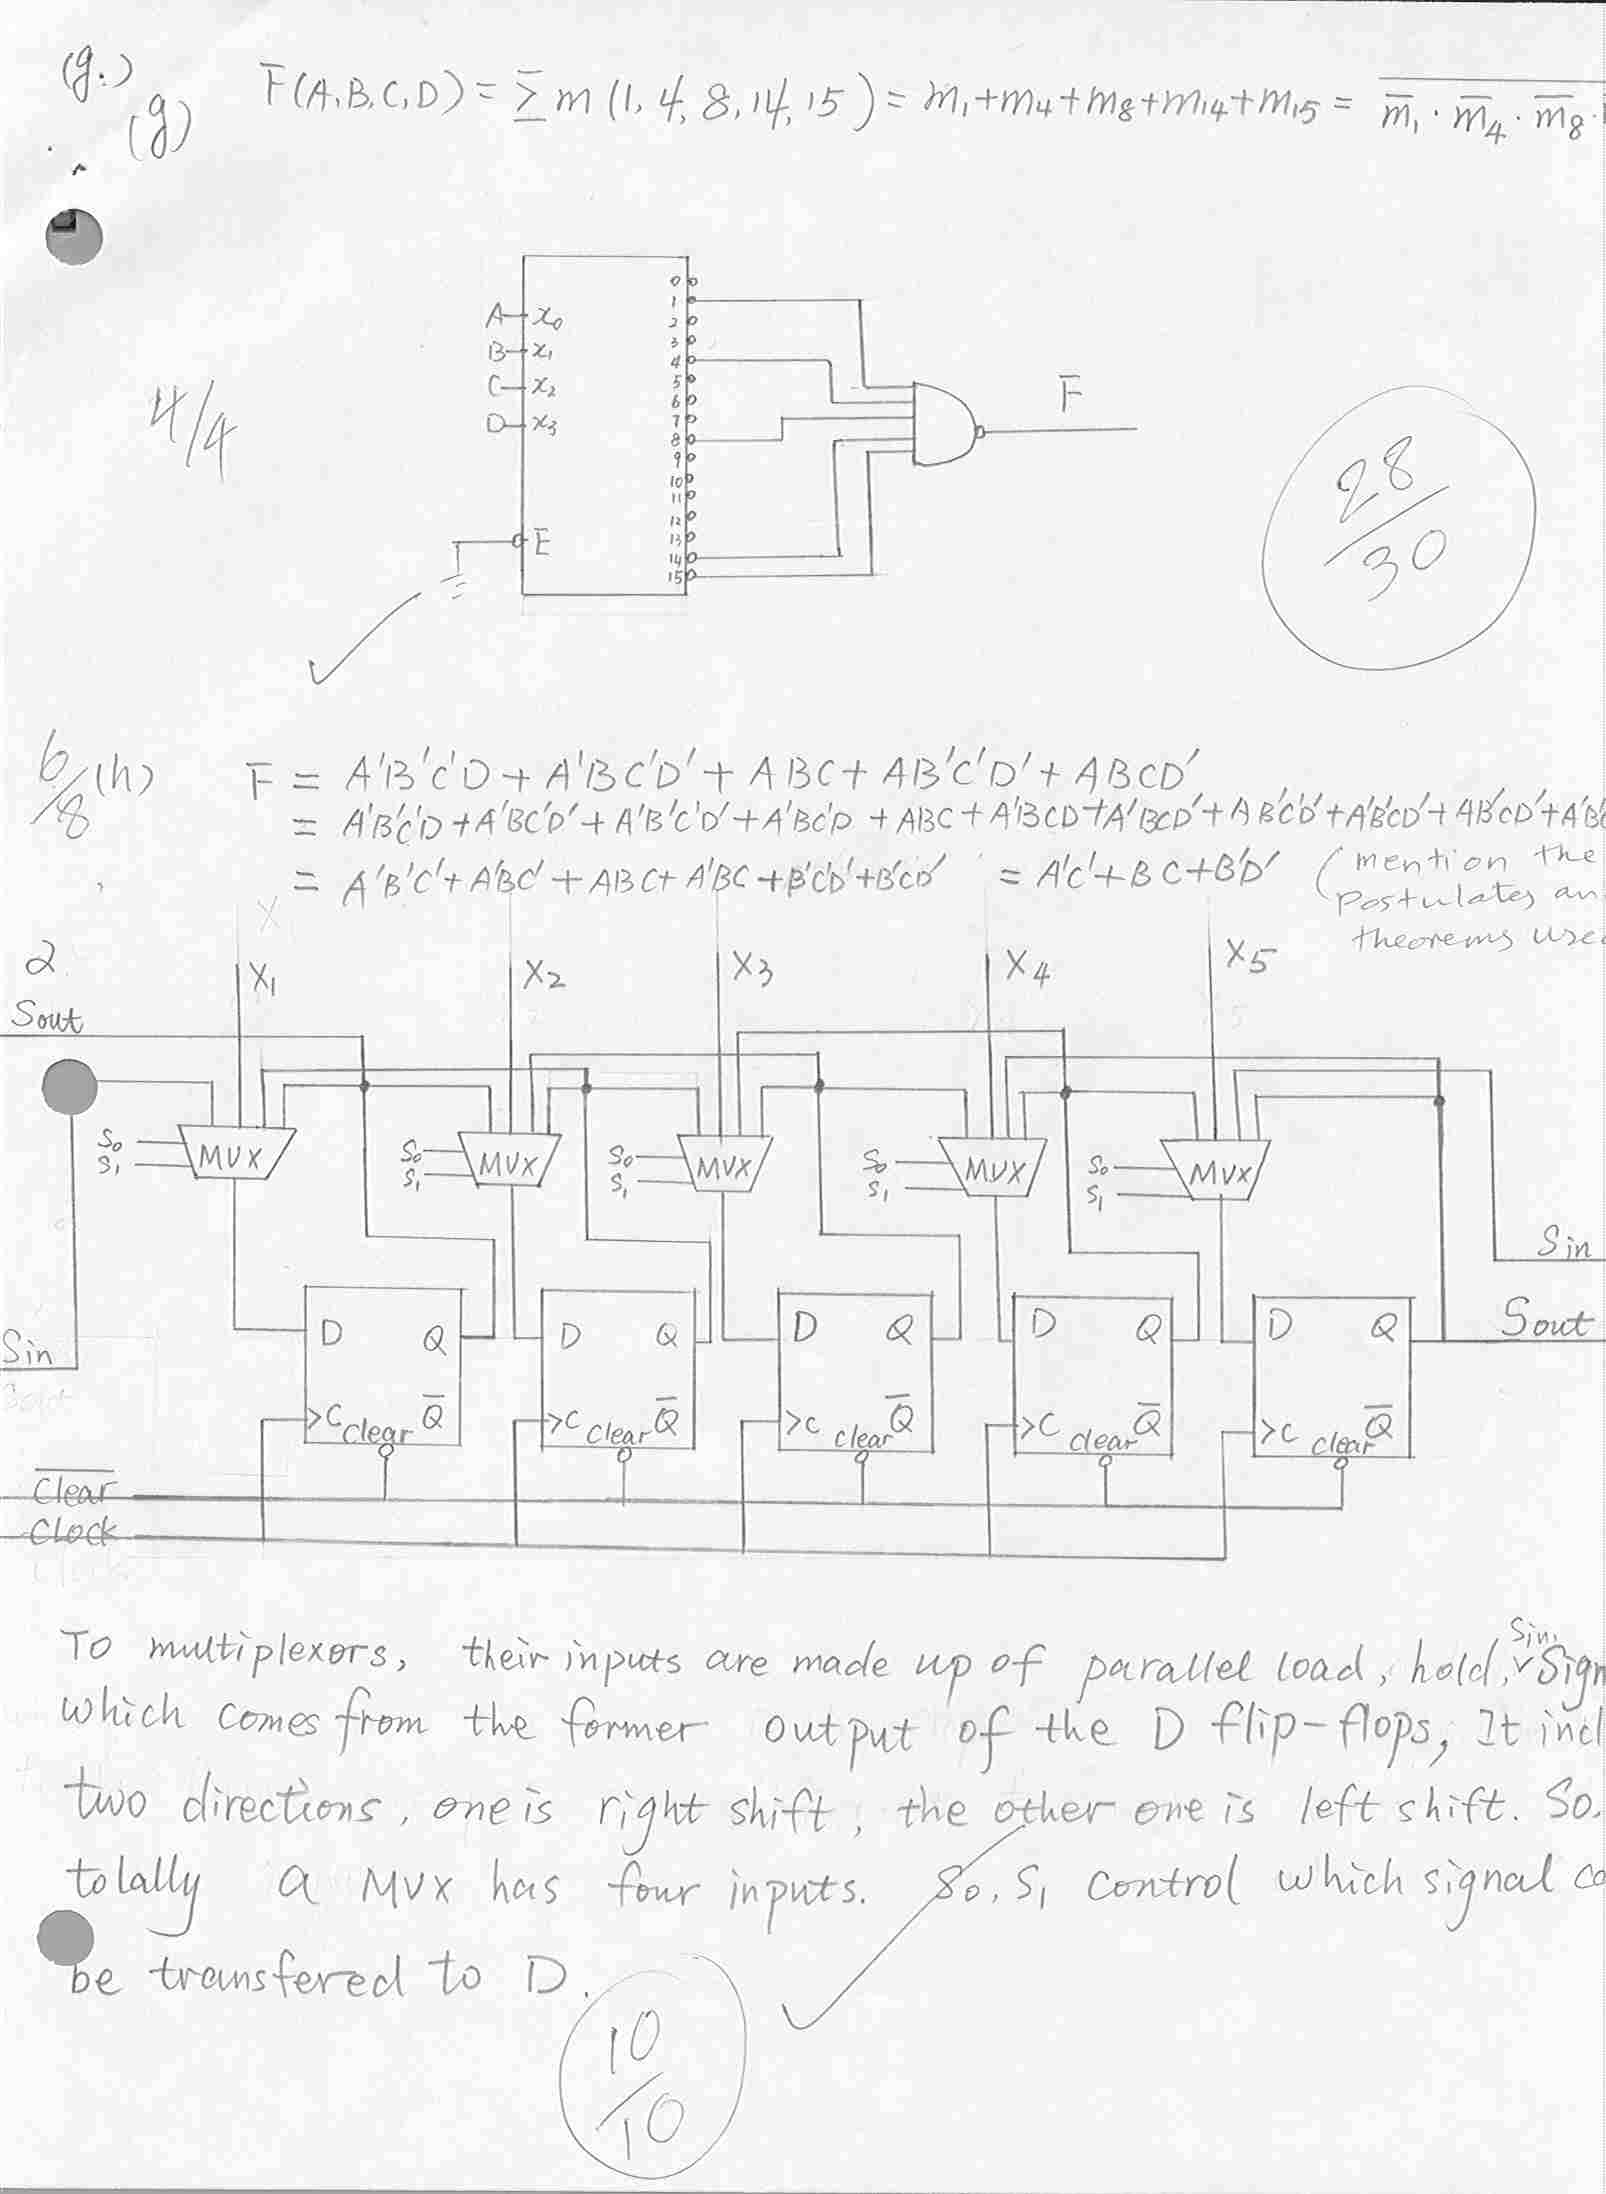 (g.)
(g)
F̅(A,B,C,D) = Σ̅ m (1, 4, 8, 14, 15) = m₁+m₄+m₈+m₁₄+m₁₅ = m̅₁ · m̅₄ · m̅₈ ·
0
1
A x₀
2
3
B x₁
4
C x₂
5
6
D x₃
7
8
9
10
11
12
E̅
13
14
15
F̅
4/4
28/30
6/8
(h) F = A'B'C'D + A'BC'D' + ABC + AB'C'D' + ABCD'
= A'B'C'D + A'BC'D' + A'B'C'D' + A'BC'D + ABC + A'BCD + A'BCD' + AB'C'D' + A'B'CD' + AB'CD' + A'B'C
= A'B'C' + A'BC' + ABC + A'BC + B'C'D' + B'CD' = A'C' + BC + B'D'
(mention the
postulates
theorems
2
X
X₁ X₂ X₃ X₄ X₅
Sout
S₀ S₁ MUX
S₀ S₁ MUX
S₀ S₁ MUX
S₀ S₁ MUX
S₀ S₁ MUX
Sin
Sout
Sin
D Q >C clear Q̅
D Q >C clear Q̅
D Q >C clear Q̅
D Q >C clear Q̅
D Q >C clear Q̅
C̅l̅e̅a̅r̅
Clock
To multiplexors, their inputs are made up of parallel load, hold, Sin,
which comes from the former output of the D flip-flops, It
two directions, one is right shift, the other one is left shift. So.
totally a MUX has four inputs. S₀, S₁ control which signal
be transfered to D.
10/10